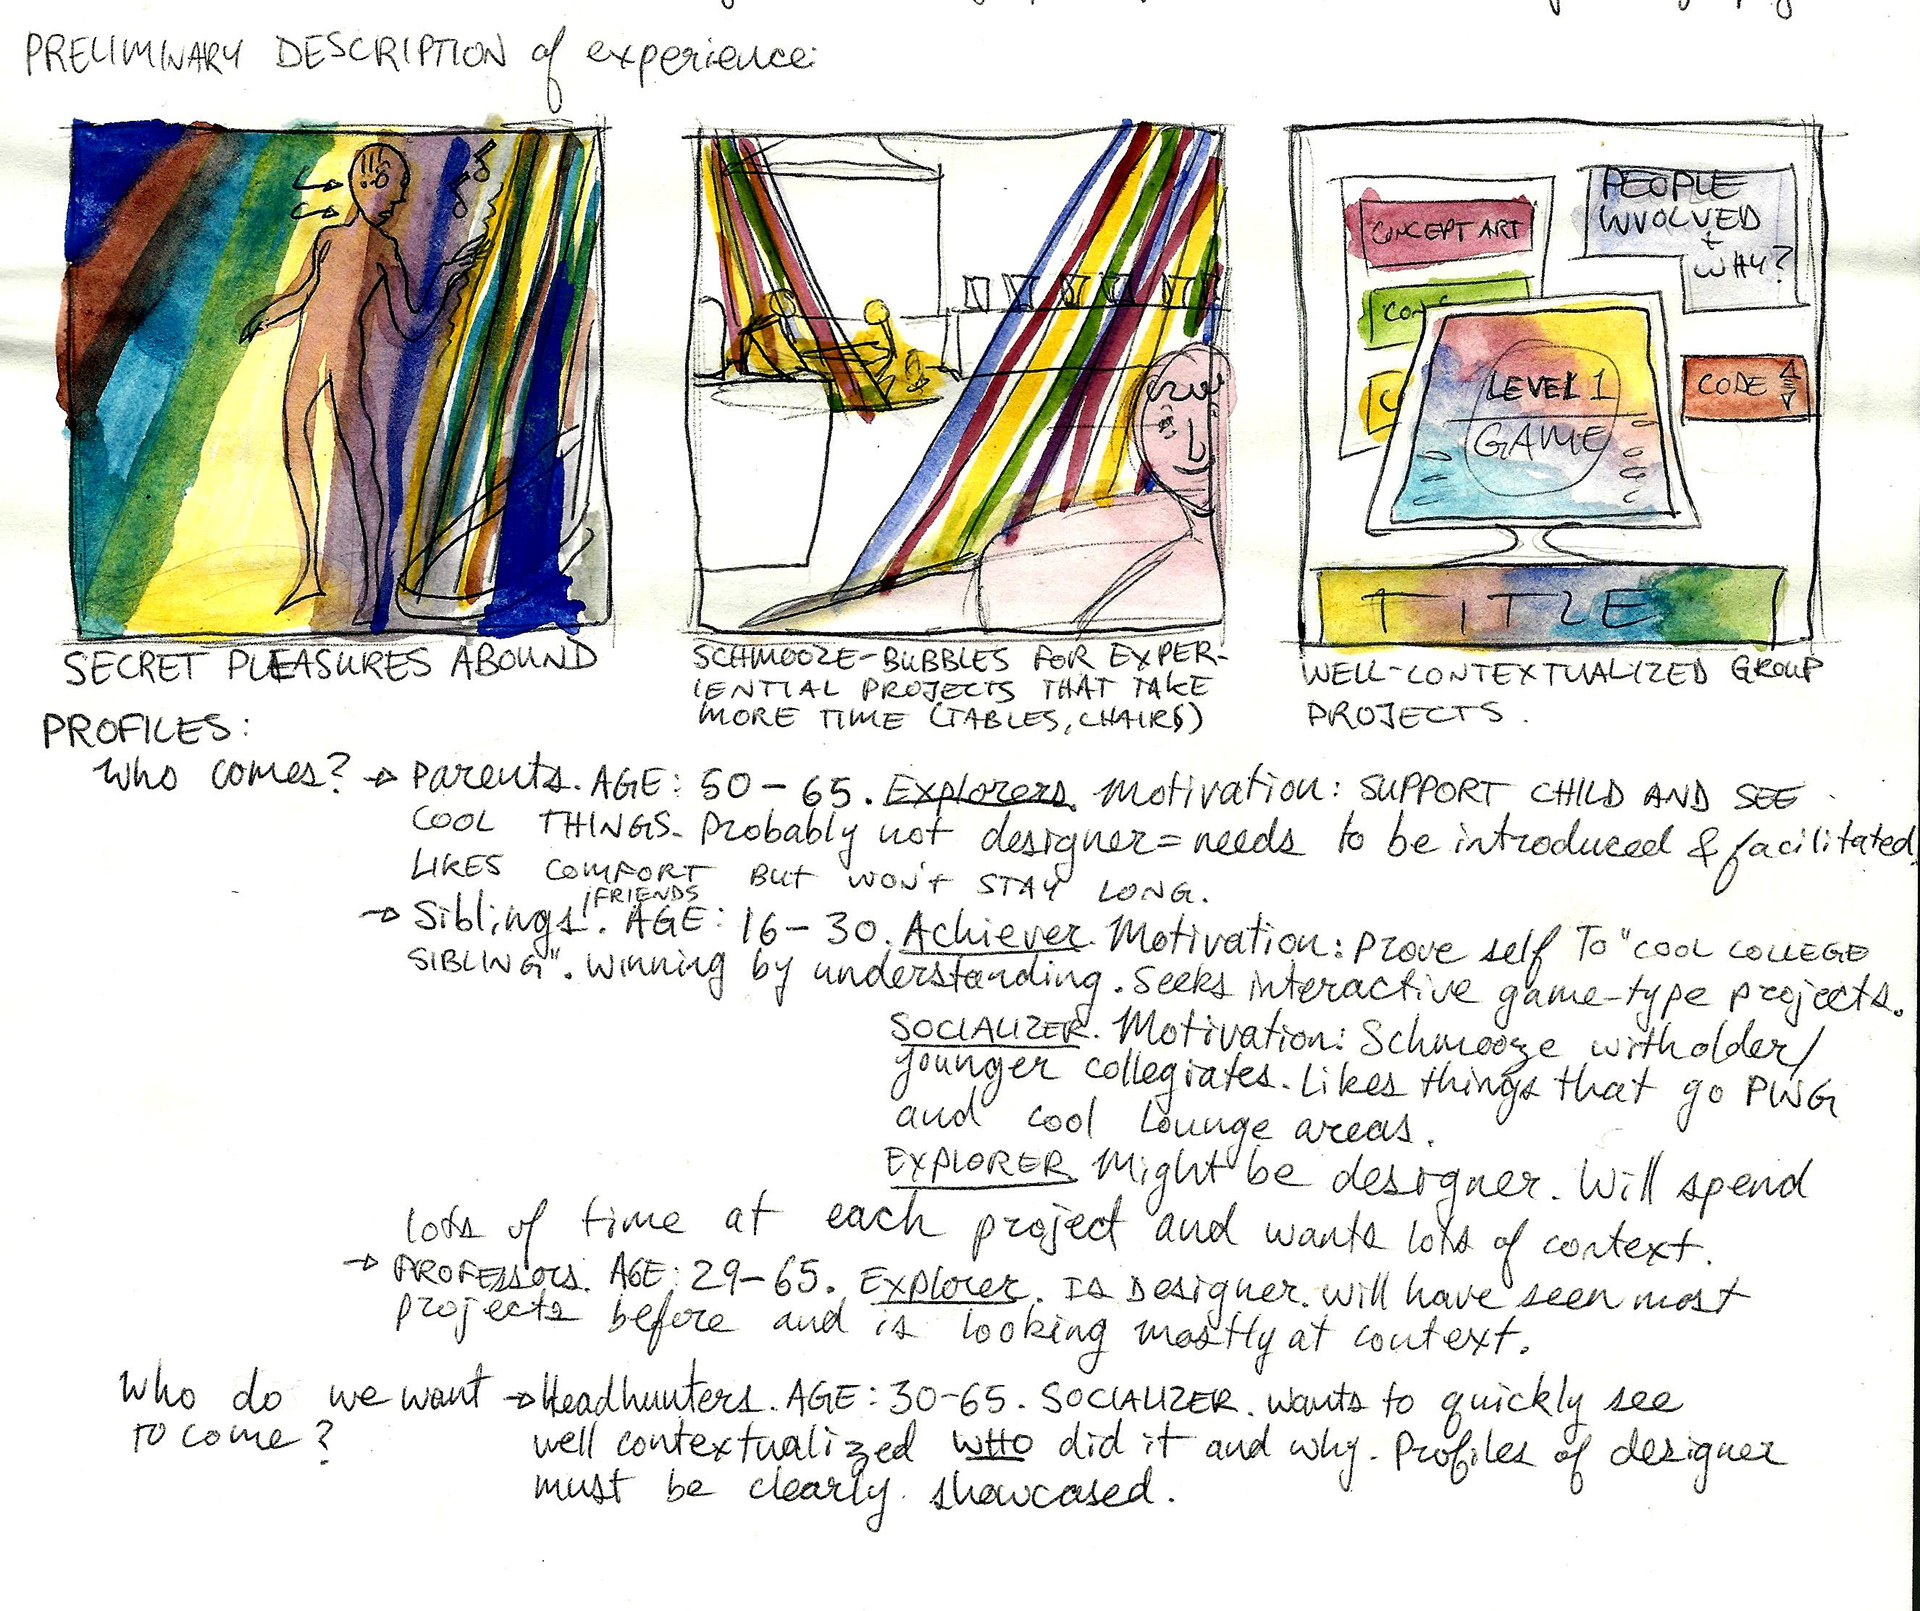 PRELIMINARY DESCRIPTION of experience:
CONCEPT ART
CON
C
PEOPLE
INVOLVED
+
WHY?
CODE
LEVEL 1
GAME
TITLE
SECRET PLEASURES ABOUND
SCHMOOZE-BUBBLES FOR EXPER-
IENTIAL PROJECTS THAT TAKE
MORE TIME (TABLES, CHAIRS)
WELL-CONTEXTUALIZED GROUP
PROJECTS.
PROFILES:
Who comes? → Parents. AGE: 50-65. Explorers. Motivation: SUPPORT CHILD AND SEE
COOL THINGS. Probably not designer = needs to be introduced & facilitated.
LIKES COMFORT BUT WON'T STAY LONG.
→ Siblings /FRIENDS. AGE: 16-30. Achiever. Motivation: Prove self To "COOL COLLEGE
SIBLING". Winning by understanding. Seeks interactive game-type projects.
SOCIALIZER. Motivation: Schmooze with older/
younger collegiates. Likes things that go PING
and cool lounge areas.
EXPLORER Might be designer. Will spend
lots of time at each project and wants lots of context.
→ PROFESSORS. AGE: 29-65. Explorer. Is Designer. Will have seen most
projects before and is looking mostly at context.
Who do we want → Headhunters. AGE: 30-65. SOCIALIZER. Wants to quickly see
TO COME? well contextualized WHO did it and why. Profiles of designer
must be clearly showcased.